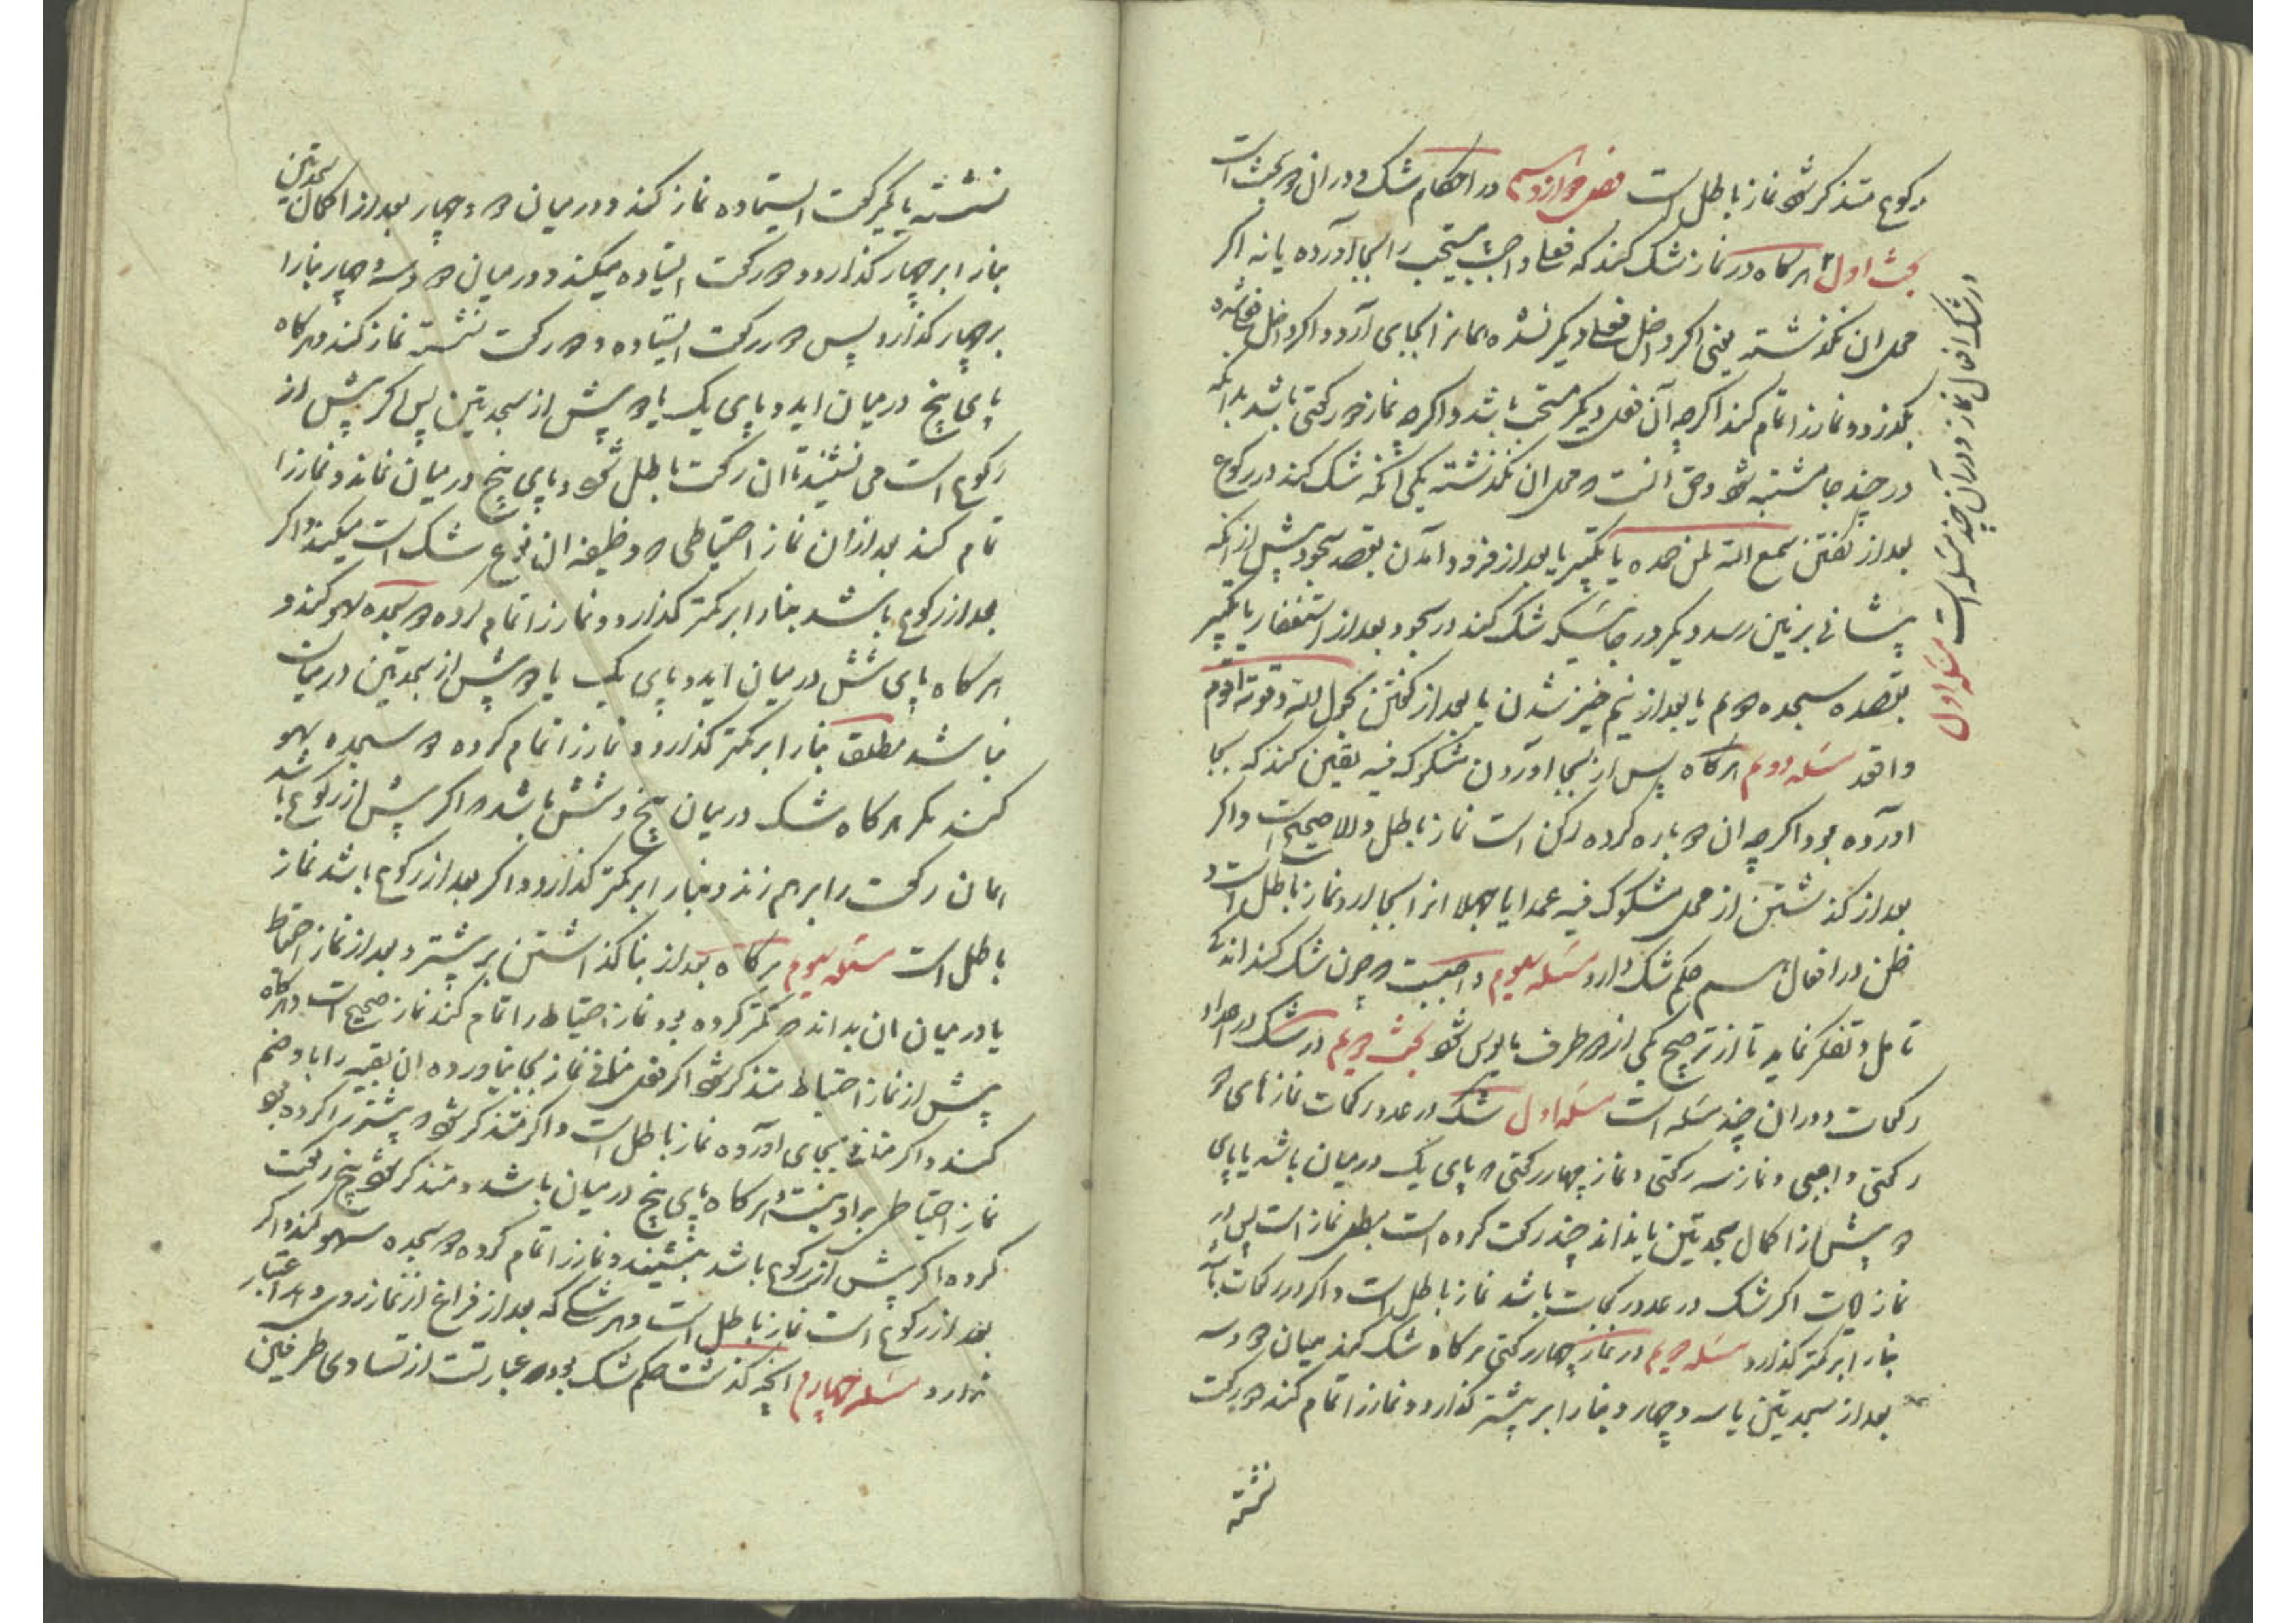 رکوع متذکر شود نماز باطل است فصل دوازدهم در احکام شک و در ان دو بحث است
بحث اول هرکاه در نماز شک کند که فعل واجب یا مستحب را بجا آورده یا نه اکر
محل ان نکذشته یعنی اکر داخل فعل دیکر نشده بماند انرا بجای آرد و اکر داخل شده
بکذرد و نماز را تمام کند اکرچه آن فعل دیکر مستحب باشد و اکرچه نماز دو رکعتی باشد بدانکه
در چند جا مشتبه شود و حق آنست که محل ان نکذشته یکی آنکه شک کند در رکوع
بعد از کفتن سمع الله لمن حمده یا تکبیر یا بعد از فرود آمدن بقصد سجود پیش از آنکه
پیشانی بر زمین رسد دیکر در جائیکه شک کند در سجود بعد از استغفار یا تکبیر
بقصد سجده دوم یا بعد از نیم خیز شدن یا بعد از کفتن بحول الله و قوته اقوم
واقعد مسئله دویم هرکاه پس از بجا اوردن مشکوک فیه یقین کند که بجا
اورده بود اکر چه ان دوباره کرده رکن است نماز باطل والا صحیح است و اکر
بعد از کذشتن از محل مشکوک فیه عمدا یا جهلا انرا بجا ارد نماز باطل است و
ظن در افعال هم حکم شک دارد مسئله سیوم واجبست که چون شک کند اندک
تامل و تفکر نماید تا از ترجیح یکی از دو طرف مایوس شود بحث دویم در شک در اعداد
رکعات و در ان چند مسئله است مسئله اول شک در عدد رکعات نمازهای دو
رکعتی واجبی و نماز سه رکعتی و نماز چهار رکعتی که پای یک درمیان باشد یا پای
دو پیش از اکمال سجدتین یا نداند چند رکعت کرده است مبطل نماز است پس در
نماز ایات اکر شک در عدد رکعات باشد نماز باطل است و اکر در رکعات باشد
بنا را بر کمتر کذارد مسئله دویم در نماز چهار رکعتی هرکاه شک کند میان دو و سه
بعد از سجدتین یا سه و چهار بنا را بر بیشتر کذارد و نماز را تمام کند دو رکعت
نشسته
در شک افعال نماز و در آن چند مسئله است مسئله اول
نشسته یا یکرکعت ایستاده نماز کند و درمیان دو و چهار بعد از اکمال سجدتین
بنا را بر چهار کذارد و دو رکعت ایستاده میکند و درمیان دو و سه و چهار بنا را
بر چهار کذارد پس دو رکعت ایستاده و دو رکعت نشسته نماز کند و هرکاه
پای پنج درمیان اید و پای یک یا دو پیش از سجدتین پس اکر پیش از
رکوع است می نشیند تا ان رکعت باطل شود و پای پنج درمیان نماند و نماز را
تمام کند بعد از ان نماز احتیاطی که وظیفه ان نوع شک است میکند و اکر
بعد از رکوع باشد بنا را بر کمتر کذارد و نماز را تمام کرده دو سجده سهو کند و
هرکاه پای شش درمیان اید و پای یک یا دو پیش از سجدتین درمیان
نباشد مطلق بنا را بر کمتر کذارد و نماز را تمام کرده دو سجده سهو
کند مکر هرکاه شک درمیان پنج و شش باشد که اکر پیش از رکوع باشد
همان رکعت را برهم زند و بنا را بر کمتر کذارد و اکر بعد از رکوع باشد نماز
باطل است مسئله سیوم هرکاه بعد از بنا کذاشتن بر بیشتر و بعد از نماز احتیاط
یا درمیان ان بداند که کمتر کرده بود نماز احتیاط را تمام کند نماز صحیح است و هرکاه
پیش از نماز احتیاط متذکر شود اکر فعل منافی نماز بجا نیاورده ان بقیه را باو ضم
کند و اکر منافی بجای اورده نماز باطل است و اکر متذکر شود که بیشتر را کرده بود
نماز احتیاط بر او نیست و هرکاه پای پنج درمیان باشد و متذکر شود پنج رکعت
کرده اکر پیش از رکوع باشد بنشیند و نماز را تمام کرده دو سجده سهو کند و اکر
بعد از رکوع است نماز باطل است و هر شکی که بعد از فراغ از نماز روی دهد اعتبار
ندارد مسئله چهارم آنچه کذشت حکم شک بود که عبارتست از تساوی طرفین